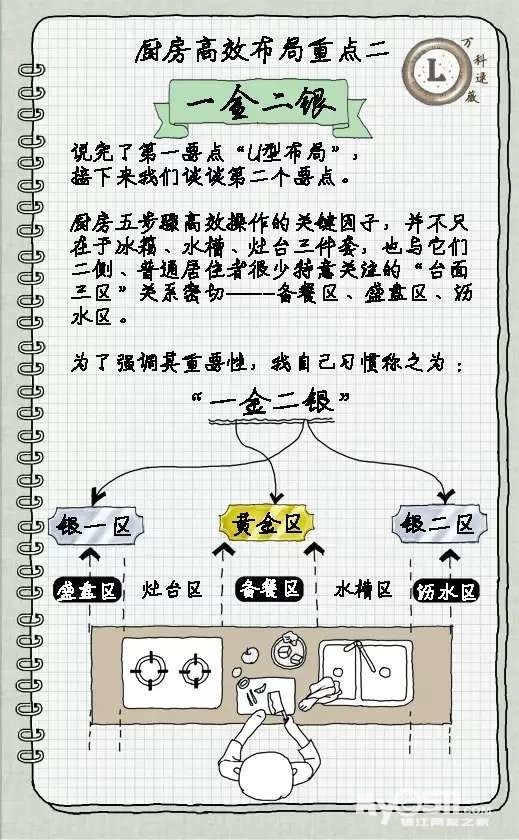 厨房高效布局重点二
万科逯薇
L
一金二银
说完了第一要点“U型布局”，
接下来我们谈谈第二个要点。
厨房五步骤高效操作的关键因子，并不只
在于冰箱、水槽、灶台三件套，也与它们
二侧、普通居住者很少特意关注的“台面
三区”关系密切——备餐区、盛盘区、沥
水区。
为了强调其重要性，我自己习惯称之为：
“一金二银”
银一区 黄金区 银二区
盛盘区 灶台区 备餐区 水槽区 沥水区